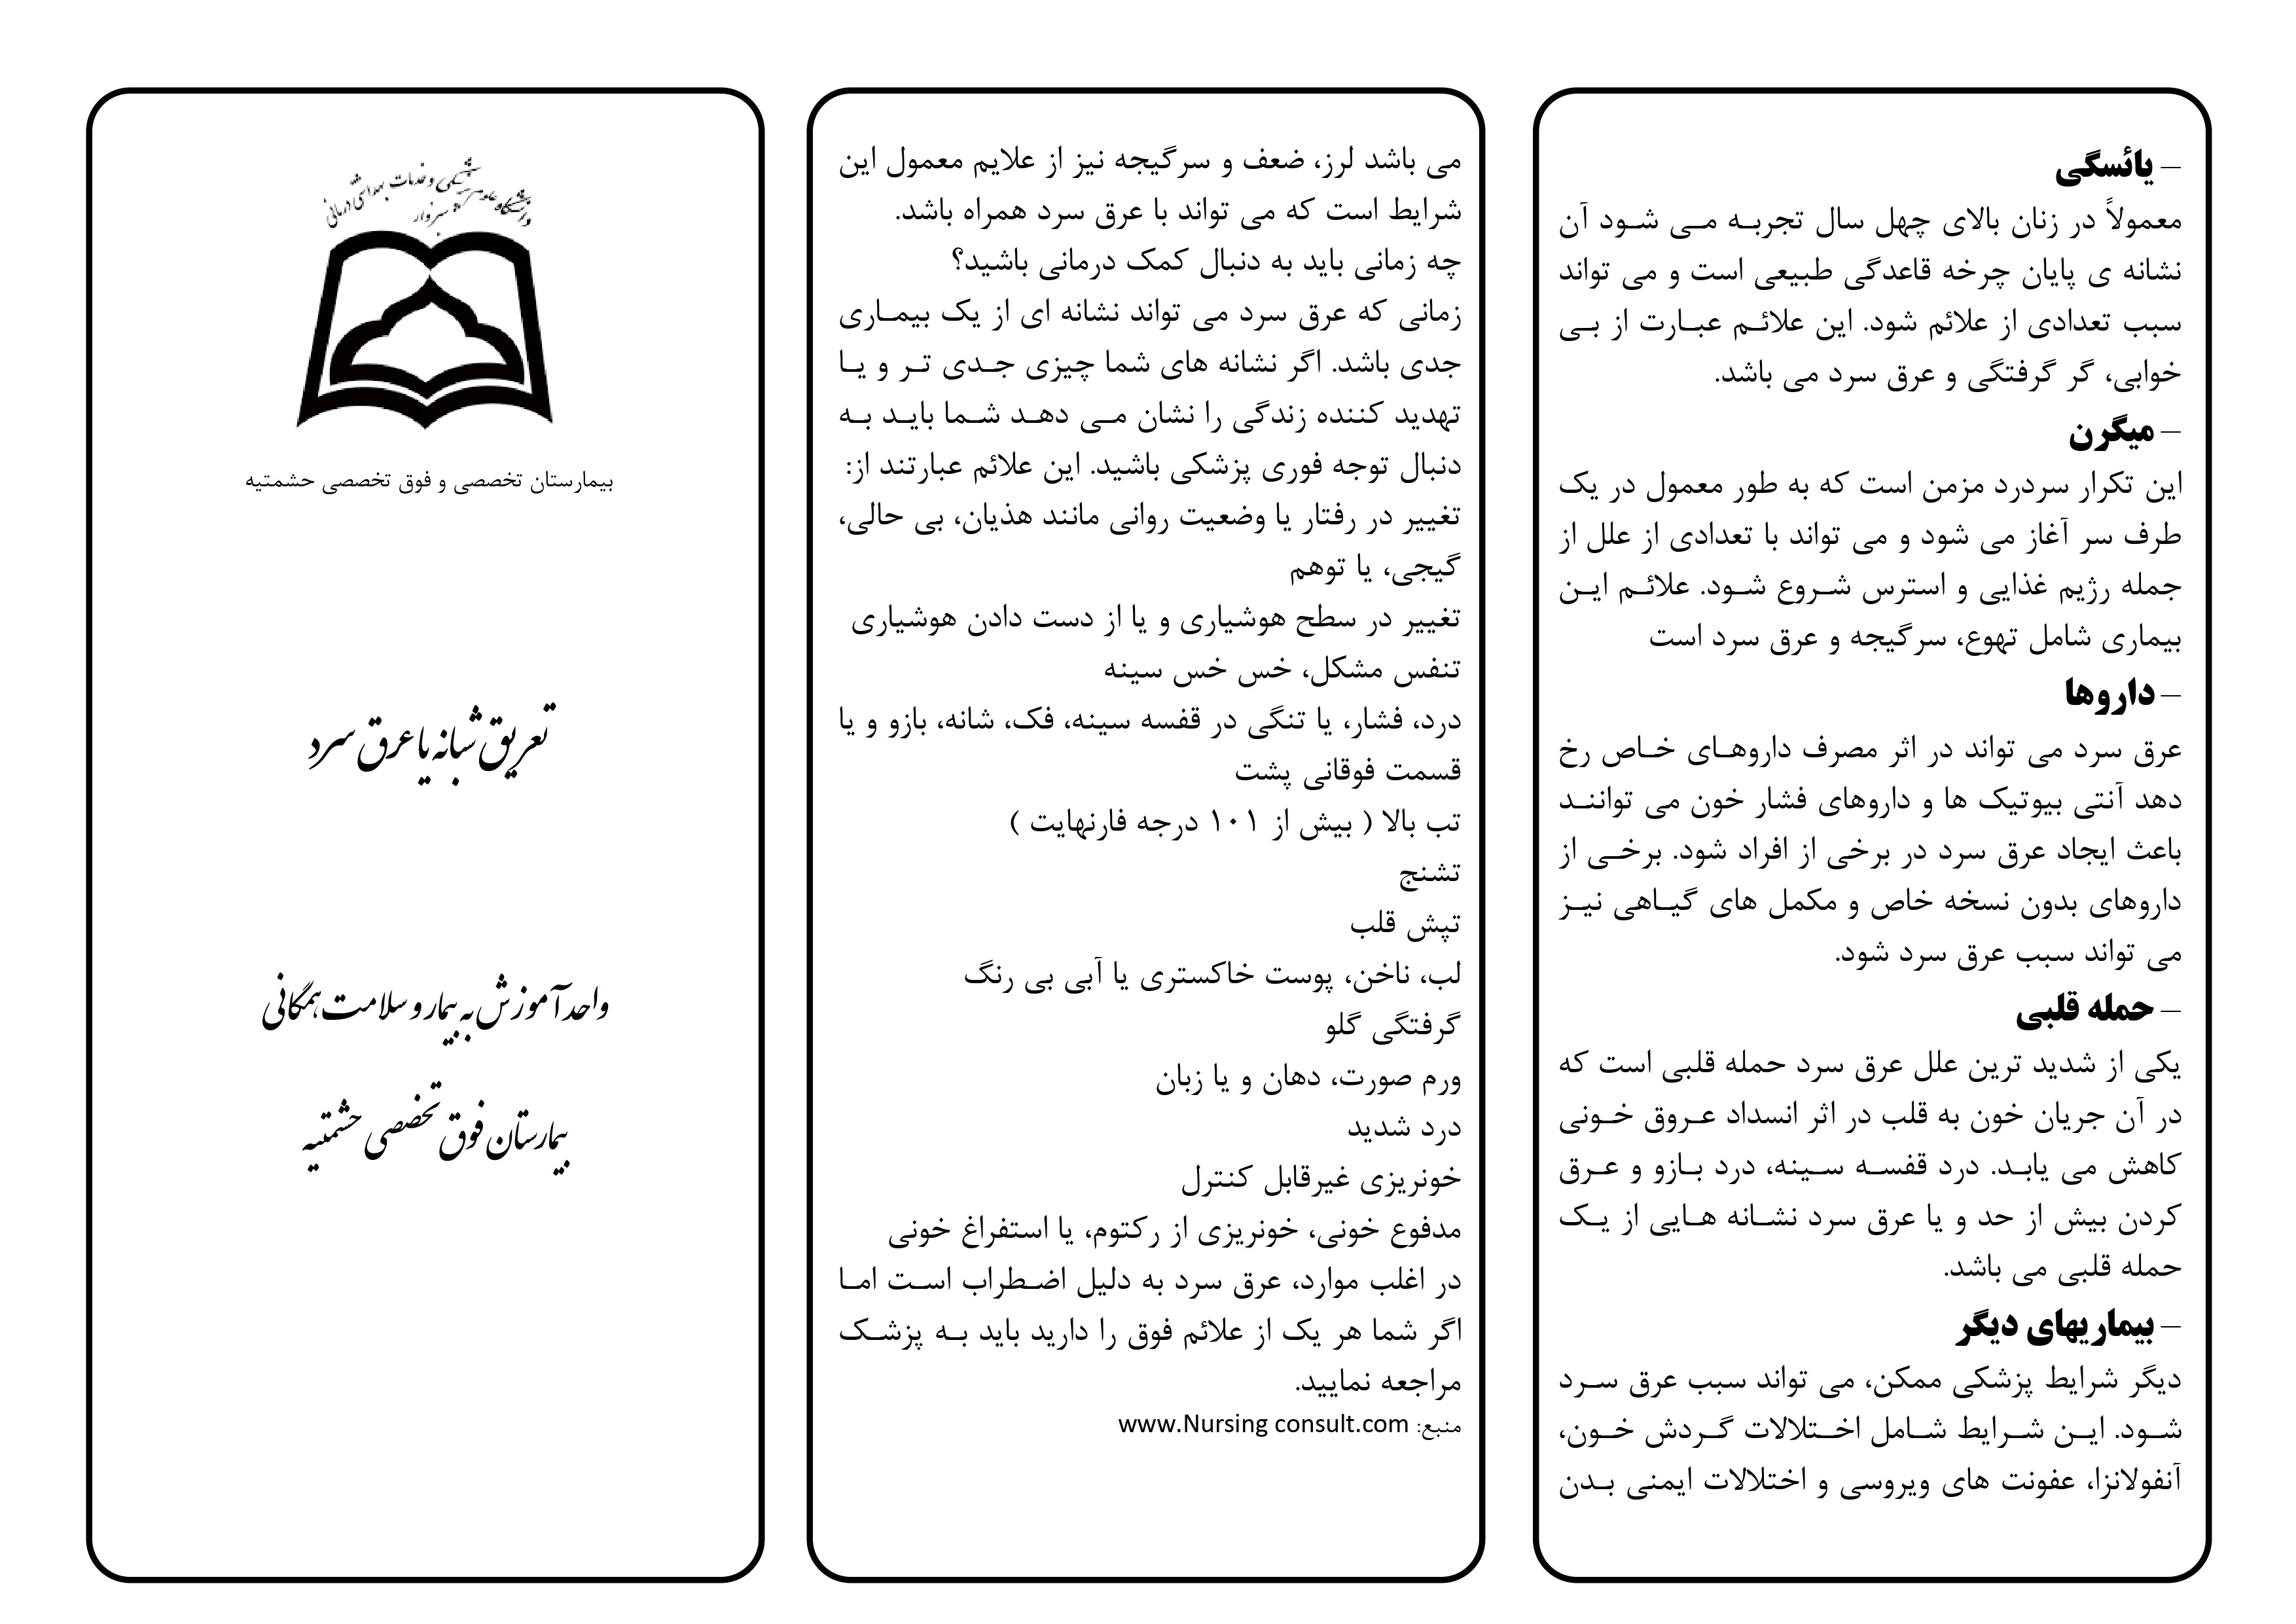 – یائسگی
معمولاً در زنان بالای چهل سال تجربه می شود آن
نشانه ی پایان چرخه قاعدگی طبیعی است و می تواند
سبب تعدادی از علائم شود. این علائم عبارت از بی
خوابی، گر گرفتگی و عرق سرد می باشد.
– میگرن
این تکرار سردرد مزمن است که به طور معمول در یک
طرف سر آغاز می شود و می تواند با تعدادی از علل از
جمله رژیم غذایی و استرس شروع شود. علائم این
بیماری شامل تهوع، سرگیجه و عرق سرد است
– داروها
عرق سرد می تواند در اثر مصرف داروهای خاص رخ
دهد آنتی بیوتیک ها و داروهای فشار خون می توانند
باعث ایجاد عرق سرد در برخی از افراد شود. برخی از
داروهای بدون نسخه خاص و مکمل های گیاهی نیز
می تواند سبب عرق سرد شود.
– حمله قلبی
یکی از شدید ترین علل عرق سرد حمله قلبی است که
در آن جریان خون به قلب در اثر انسداد عروق خونی
کاهش می یابد. درد قفسه سینه، درد بازو و عرق
کردن بیش از حد و یا عرق سرد نشانه هایی از یک
حمله قلبی می باشد.
– بیماریهای دیگر
دیگر شرایط پزشکی ممکن، می تواند سبب عرق سرد
شود. این شرایط شامل اختلالات گردش خون،
آنفولانزا، عفونت های ویروسی و اختلالات ایمنی بدن
می باشد لرز، ضعف و سرگیجه نیز از علایم معمول این
شرایط است که می تواند با عرق سرد همراه باشد.
چه زمانی باید به دنبال کمک درمانی باشید؟
زمانی که عرق سرد می تواند نشانه ای از یک بیماری
جدی باشد. اگر نشانه های شما چیزی جدی تر و یا
تهدید کننده زندگی را نشان می دهد شما باید به
دنبال توجه فوری پزشکی باشید. این علائم عبارتند از:
تغییر در رفتار یا وضعیت روانی مانند هذیان، بی حالی،
گیجی، یا توهم
تغییر در سطح هوشیاری و یا از دست دادن هوشیاری
تنفس مشکل، خس خس سینه
درد، فشار، یا تنگی در قفسه سینه، فک، شانه، بازو و یا
قسمت فوقانی پشت
تب بالا ( بیش از ۱۰۱ درجه فارنهایت )
تشنج
تپش قلب
لب، ناخن، پوست خاکستری یا آبی بی رنگ
گرفتگی گلو
ورم صورت، دهان و یا زبان
درد شدید
خونریزی غیرقابل کنترل
مدفوع خونی، خونریزی از رکتوم، یا استفراغ خونی
در اغلب موارد، عرق سرد به دلیل اضطراب است اما
اگر شما هر یک از علائم فوق را دارید باید به پزشک
مراجعه نمایید.
منبع: www.Nursing consult.com
دانشگاه علوم پزشکی و خدمات بهداشتی درمانی
سبزوار
بیمارستان تخصصی و فوق تخصصی حشمتیه
تعریق شبانه یا عرق سرد
واحد آموزش به بیمار و سلامت همگانی
بیمارستان فوق تخصصی حشمتیه